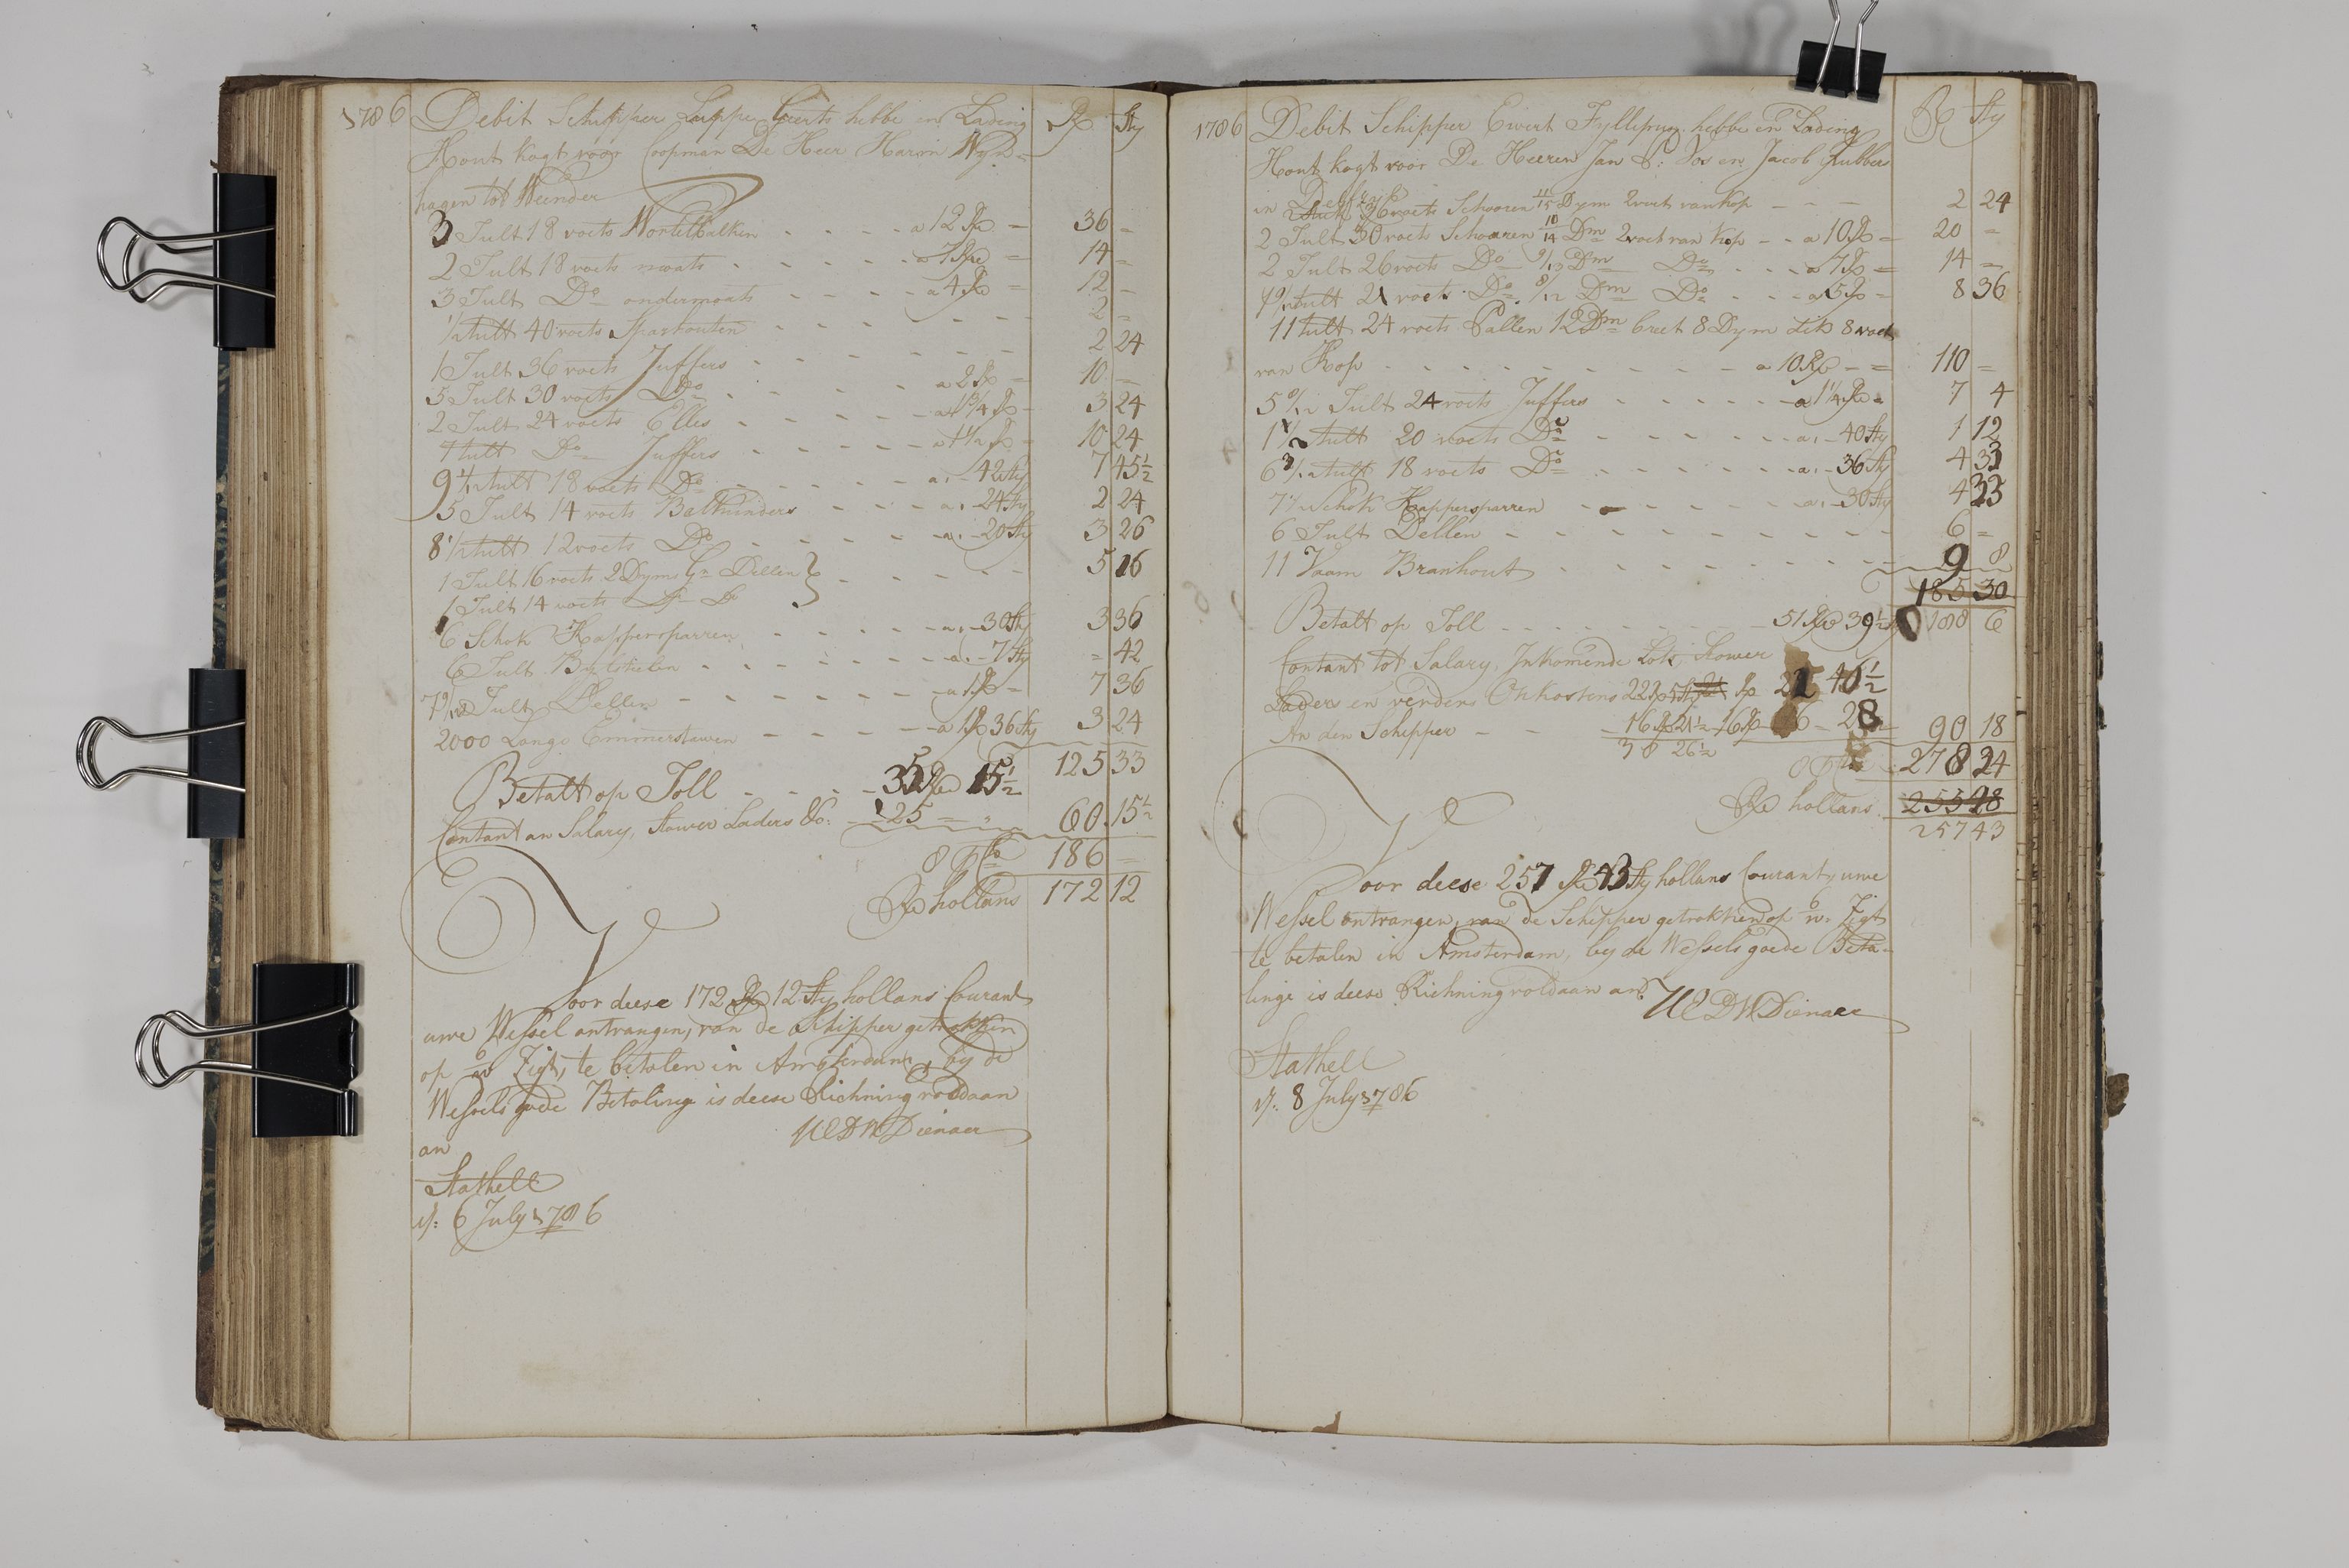 1786 Debit Schipper Luppe Geerts hebbe in Lading Rd Sty
Hont kogt voor Coopman De Heer Harm Wyn=
hagen tot Weender
3 Tult 18 voets Wortelbalken - - - - a 12 Rd = 36 =
2 Tult 18 voets moats - - - - - a 7 Rd = 14 =
3 Tult Do ondermoats - - - - a 4 Rd = 12 -
1/2 tult 40 voets Sparhouten - - - - - - - 2 =
1 Tult 36 voets Juffers - - - - - - - 2 24
5 Tult 30 voets Do - - - - - a 2 Rd = 10 -
2 Tult 24 voets Elles - - - - a 1 3/4 Rd - 3 24
7 tult Do Juffers - - - - - a 1 1/2 Rd - 10 24
9 1/12 tult 18 voets Do - - - - - a, - 42 Sty 7 45 1/2
5 Tult 14 voets Baltninders - - - - a, - 24 Sty 2 24
8 1/2 tult 12 voets Do - - - - - a, - 20 Sty 3 26
1 Tult 16 voets 2 Dyms Gr Dellen } - - - - - 5 16
1 Tult 14 voets Do Do
6 Schok Kappersparren - - - - - a, - 30 Sty 3 36
6 Tult Bylstielen - - - - - - a, - 7 Sty = 42
7 9/12 Tult Dellen - - - - - - a 1 Rd - 7 36
2000 Lange Emmerstawen - - - - a 1 Rd 36 Sty 3 24
125 33
Betalt op Toll - - - - 35 Rd 15 1/2
Contant an Salary, Stower Laders &c: - 25 = " 60 15 1/2
8 pCto 186 =
Rd hollans 172 12
Voor deese 172 Rd 12 Sty hollans Courant
uwe Wessel ontvangen, van de Schipper getrokken
op 6 w Zigt, te betalen in Amsterdam, by de
Wessels goede Betaling is deese Richning voldaan
an UEDW Dienaer
Stathell
d: 6 July 1786
1786 Debit Schipper Ewert Fyllipus hebbe in Lading Rd Sty
Hont kogt voor De Heeren Jan P: Vos en Jacob Rubbers
in Delfzyl
26 voets Schooren 11/15 Dym 2 voet van Kop - - - 2 24
2 Tult 30 voets Schooren 10/14 Dm 2 voet van Kop - - a 10 Rd = 20 =
2 Tult 26 voets Do 9/13 Dm Do - - - a 7 Rd = 14 =
21 voets Do 8/12 Dm Do - - - a 5 Rd = 8 36
11 tult 24 voets Ballen 12 Dm breet 8 Dym dik 8 voet
van Kop - - - - - - - - - a 10 Rd - = 110 =
5 8/12 Tult 24 voets Juffers - - - - - - a 1 1/4 Rd = 7 4
1 1/2 tult 20 voets Do - - - - - - a, - 40 Sty 1 12
6 3/12 tult 18 voets Do - - - - - - a, - 36 Sty 4 33
Schok Kappersparren - - - - - - a, - 30 Sty 4 33
6 Tult Dellen - - - - - - - - - - 6 =
11 Vaam Branhout - - - - - - - - - 9 8
185 30
Betalt op Toll - - - - - - - 51 Rd 39 1/2 188 6
Contant tot Salary, Inkomende Lots, Stower
Laders en verdere Onkostens 22 Rd 5 Sty Rd 21 40 1/2
An den Schipper - - - 16 Rd 21 1/2 16 Rd 16 - 28 90 18
38 26 1/2
8 pCto 278 24
Rd hollans 255 28
257 43
Voor deese 257 Rd 43 Sty hollans Courant, uwe
Wessel ontvangen, van de Schipper getrokken op 6 w: Zigt
te betalen in Amsterdam, by de Wessels goede Beta-
linge is deese Richning voldaan an UEDW Dienaer
Stathell
d: 8 July 1786